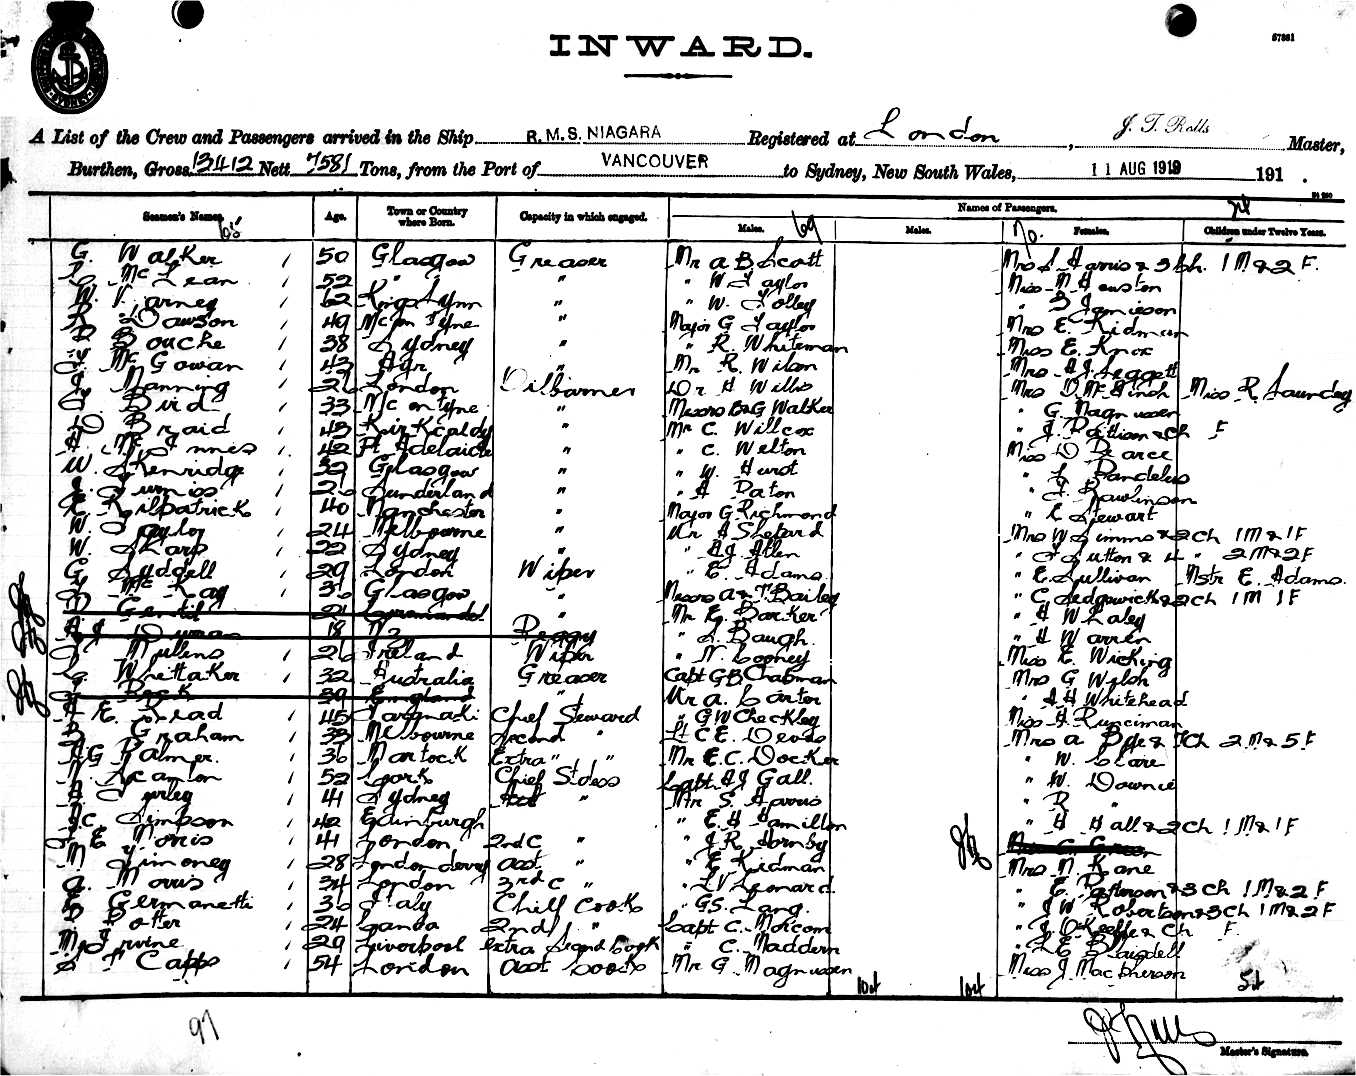 INWARD.
57881
A List of the Crew and Passengers arrived in the Ship R.M.S. NIAGARA Registered at London, J. T. Rolls Master,
Burthen, Gross 13412 Nett 7581 Tons, from the Port of VANCOUVER to Sydney, New South Wales, 11 AUG 1919 191 .
Seamen's Names. Age. Town or Country where Born. Capacity in which engaged. Names of Passengers.
Males. 69 Males. 70. Females. Children under Twelve Years.
G. Walker 50 Glasgow Greaser Mr A B Scott Mrs S Harris & 3 Ch. 1 M & 2 F.
McLean 52 " " " " W Taylor Miss M Heuston
W. Varney 62 Kings Lynn " " W. Tolley " Jamieson
R Dawson 49 Nc on Tyne " Major G Taylor Mrs E. Kidman
Bouche 38 Sydney " " R. Whiteman Miss E. Knox
McGowan 43 Ayr " Mr R. Wilson Mrs A J Leggett
J. Manning 26 London Oilburner Dr H Willis Mrs Miss R Saunders
G. Bird 33 Nc on Tyne " Messrs B & G Walker " G Magnussen
D Braid 43 Kirkcaldy " Mr C. Willcox " J. Pattison & Ch F
H McInnes 42 Pt Adelaide " " C. Welton Miss D Pearce
W. Skenridge 39 Glasgow " " W. Hurst " L Bandelus
26 Sunderland " " H Paton " J. Rawlinson
Kilpatrick 40 Manchester " Major G. Richmond " Stewart
W. Taylor 24 Melbourne " Mr A Shepard Mrs W Simms & 2 ch 1 M & 1 F
W. Sharp 22 Sydney " " A J Allen " J Sutton & 4 " 2 M & 2 F
G. Siddell 29 London Wiper " E. Adams. " E. Sullivan Mstr E. Adams.
McKay 36 Glasgow " Messrs A & T Bailey " C Sedgewick & 2 ch 1 M 1 F
Gentil 21 " Mr E. Barker " H W Haley
18 N Z Peggy " S. Baugh. " H Warren
Mullens 26 Ireland Wiper " N. Cooney Miss E. Wicking
G. Whittaker 32 Australia Greaser Capt G B Chapman Mrs G Welch
Peck 39 England " Mr A. Carter " A H Whitehead
H E. Read 45 Taranaki Chief Steward " G W Checkley Miss H Runciman
Graham 33 Melbourne Second " Lt C E. Deeds Mrs A Bye & 7 Ch 2 M & 5 F
A G Palmer. 36 Martock Extra " " Mr E. C. Docker " W. Clare
Scanlon 52 Cork Chief Stdess Capt A J Gall. " W. Downie
H Turley 41 Sydney Asst " Mr S. Harris " R "
J C. Simpson 42 Edinburgh " E H Hamilton " H Hall & 2 ch 1 M & 1 F
J E Norris 41 London 2nd C " " J. R. Hornby
M Timoney 28 Londonderry Asst " " E Kidman Mrs N Kane
A. Morris 34 London 3rd C " " L V Leonard " E. Patterson & 3 ch 1 M & 2 F
E Germanetti 36 Italy Chief Cook " G S. Lang. " J W Robertson & 3 ch 1 M & 2 F
Potter 24 2nd " Capt C. Morcom " J. O'Keeffe & Ch F.
M J Irvine 29 Liverpool Extra Second Cook " C. Maddern " L E Blaisdell
F Capps 54 London Asst Cook Mr G Magnussen Miss J MacPherson
97
Master's Signature.